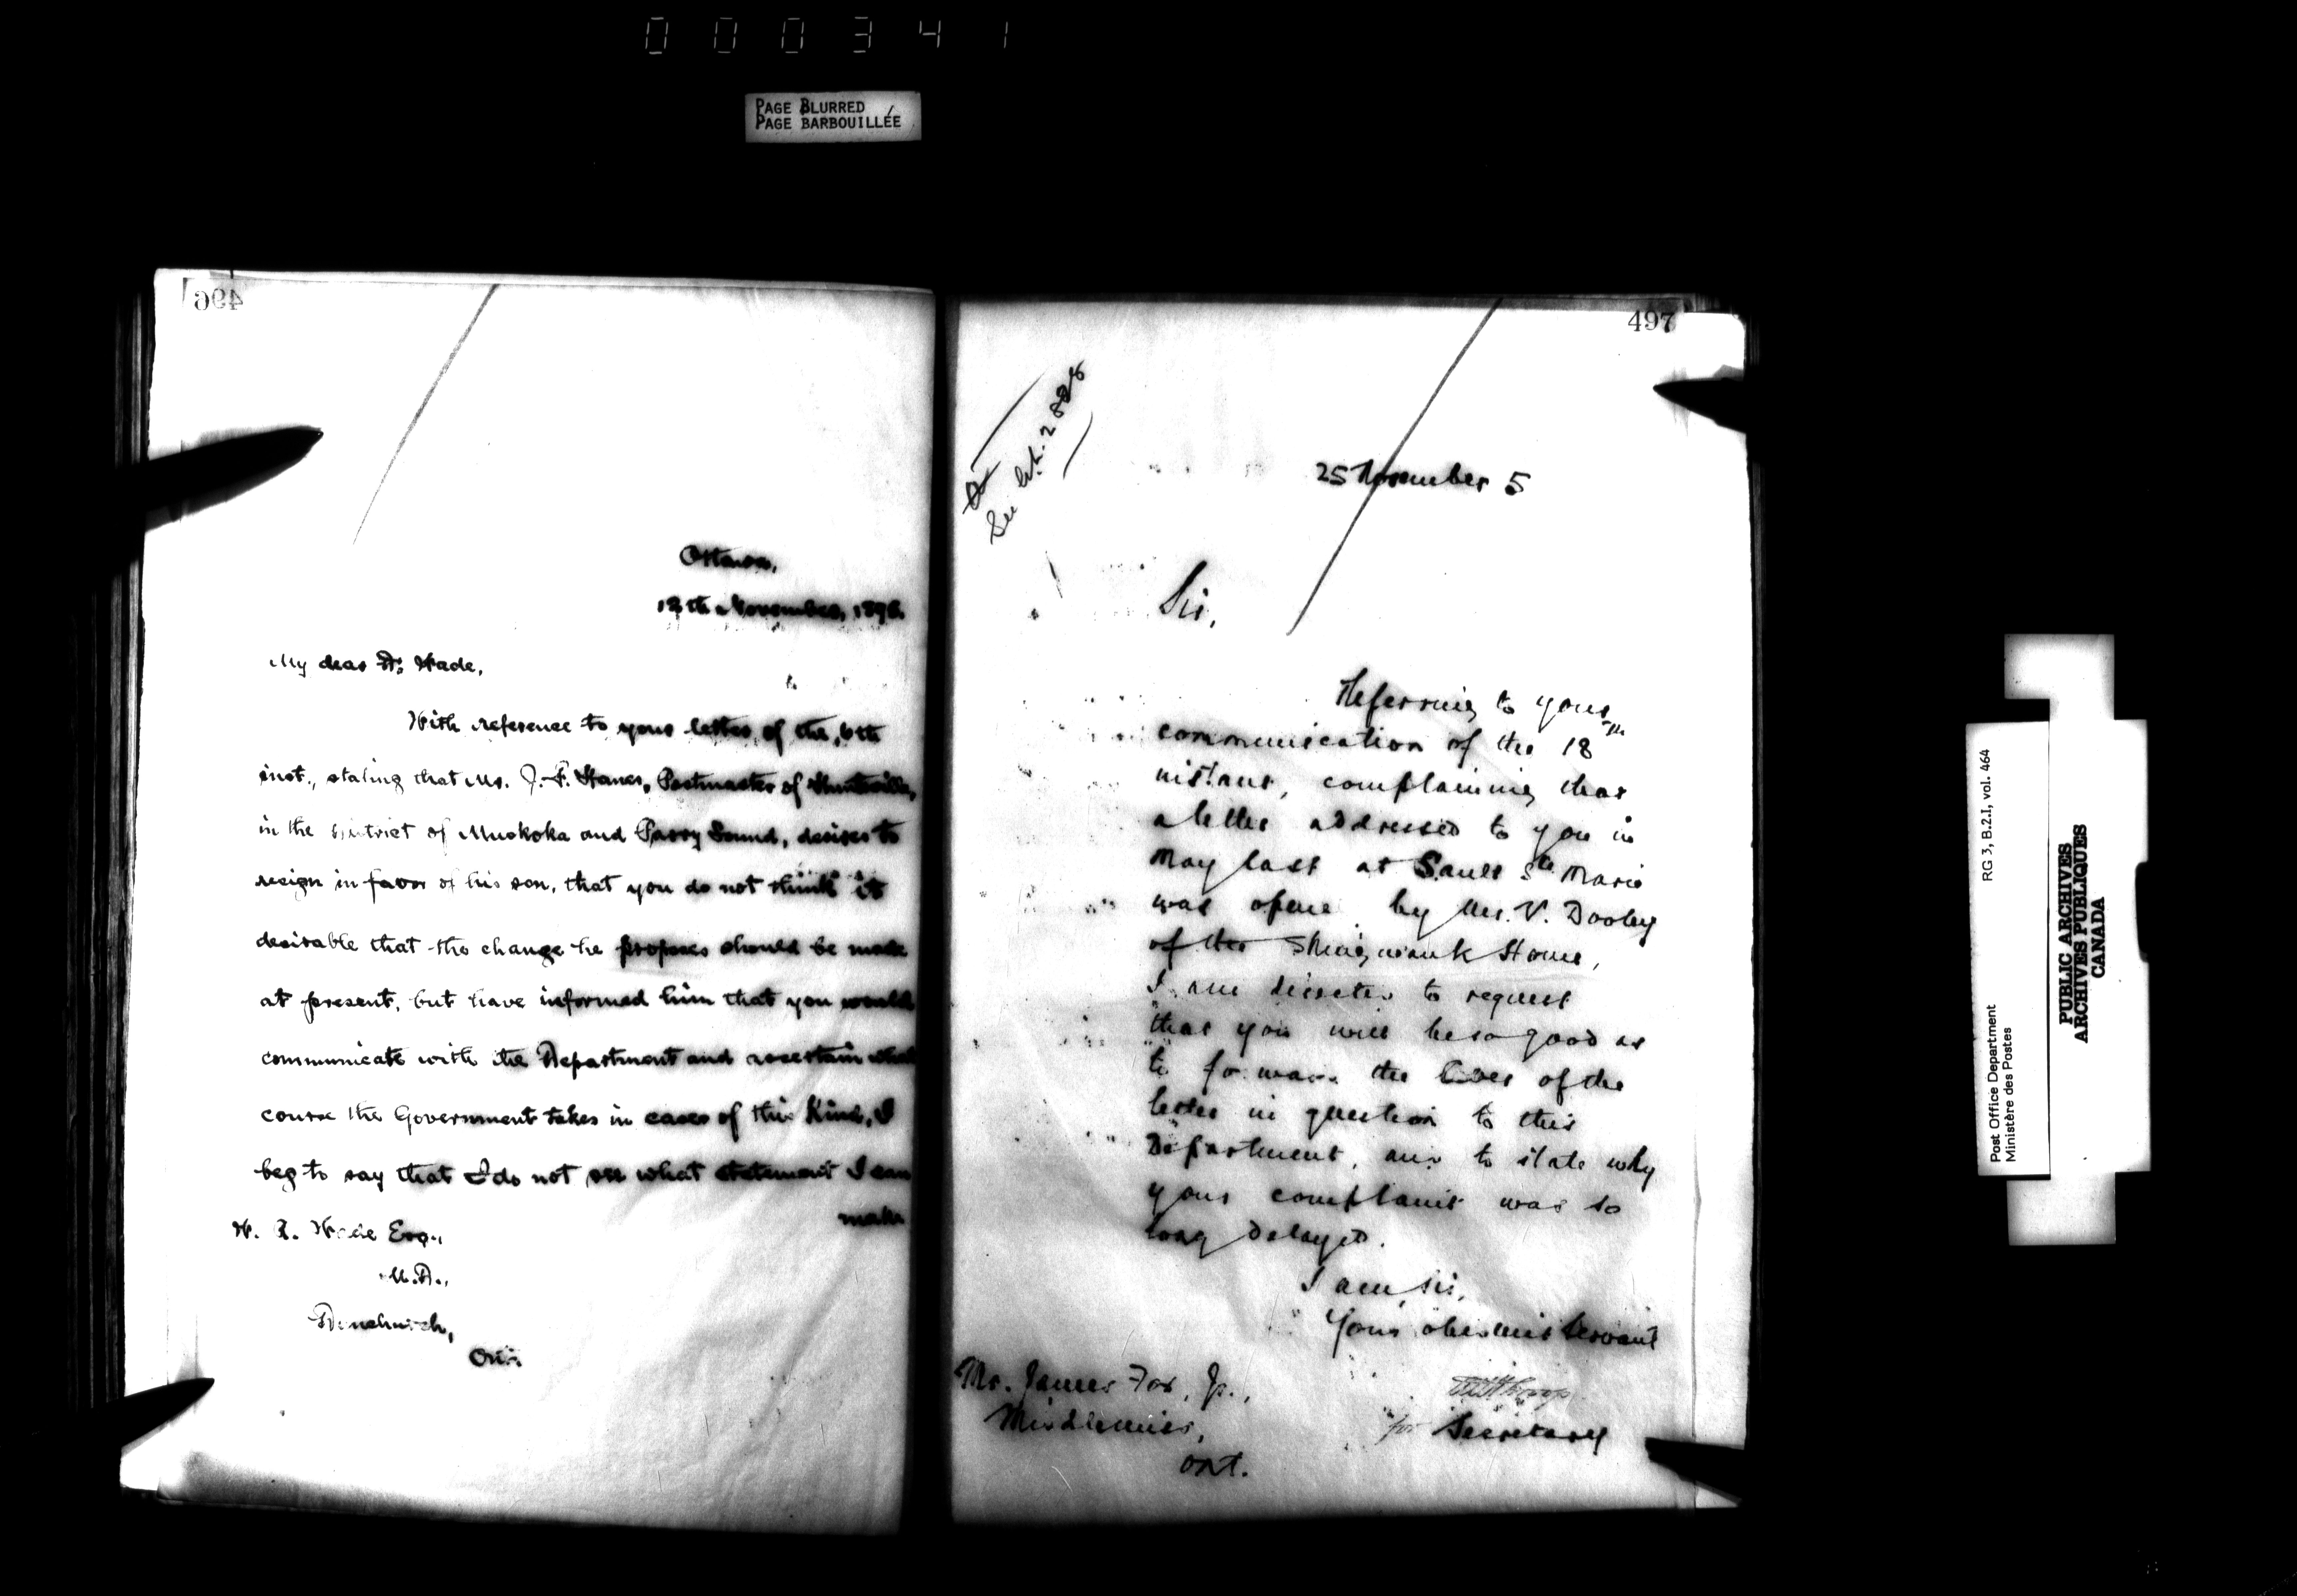 000341
PAGE BLURRED
PAGE BARBOUILLÉE
496
Ottawa,
12th November, 1896.
My dear Dr. Wade,
With reference to your letter of the 6th
inst., stating that Mr. J. F. Hanes, Postmaster of Huntsville,
in the District of Muskoka and Parry Sound, desires to
resign in favor of his son, that you do not think it
desirable that the change he proposes should be made
at present, but have informed him that you would
communicate with the Department and ascertain what
course the Government takes in cases of this kind, I
beg to say that I do not see what statement I can
make
W. R. Wade Esq.,
M.D.,
Ont.
497
25 November 5
Sir,
Referring to your
communication of the 18th
instant, complaining that
a letter addressed to you in
May last at Sault Ste Marie
was opene by Mr. V. Dooley
of the Shingwauk Home,
I am directed to request
that you will be so good as
to forward the cover of the
letter in question to this
Department, and to state why
your complaint was so
long delayed.
I am, Sir,
Your obedient Servant
for Secretary
Mr. James Fox, Jr.,
Middlemiss,
Ont.
Post Office Department
Ministère des Postes
RG 3, B.2.I, vol. 464
PUBLIC ARCHIVES
ARCHIVES PUBLIQUES
CANADA